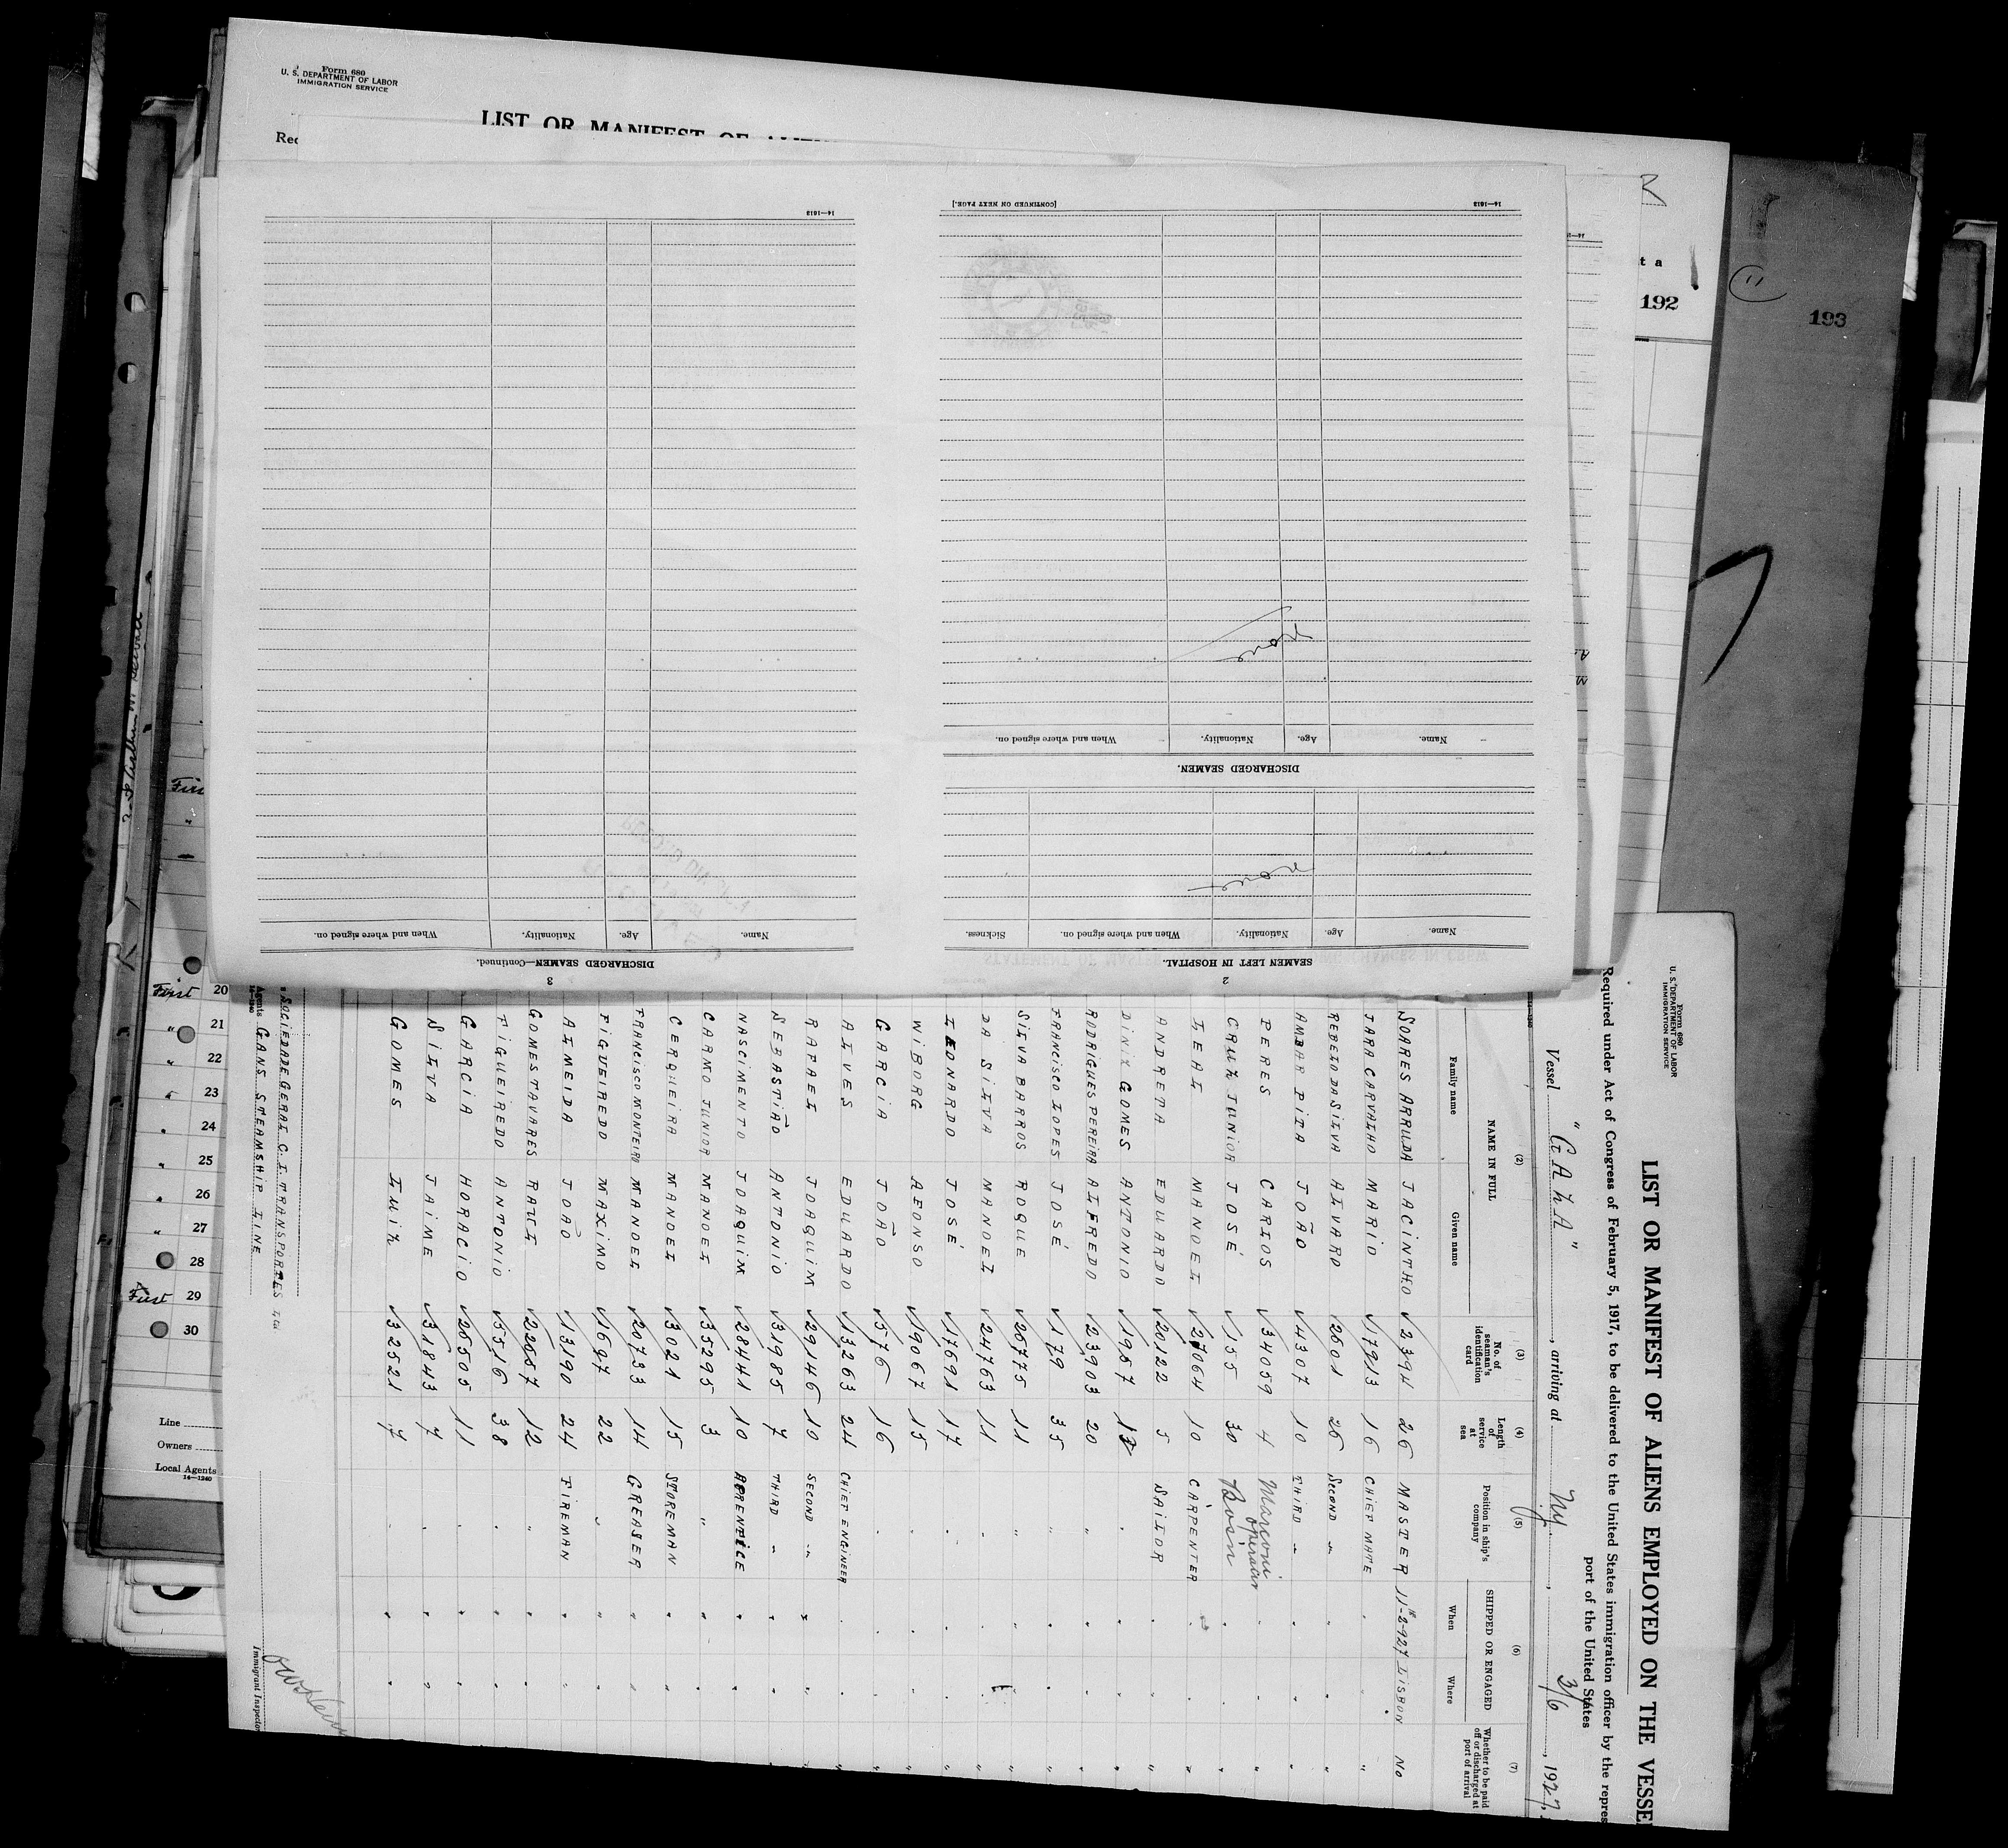 Form 680
U. S. DEPARTMENT OF LABOR
IMMIGRATION SERVICE
LIST OR MANIFEST OF
t a
192
193
14—1613
3
DISCHARGED SEAMEN—Continued.
Name. Age. Nationality. When and where signed on.
14—1613
2
SEAMEN LEFT IN HOSPITAL.
Name. Age. Nationality. When and where signed on. Sickness.
None
DISCHARGED SEAMEN.
Name. Age. Nationality. When and where signed on.
None
[CONTINUED ON NEXT PAGE.]
14—1613
First 20
" 21
" 22
" 23
" 24
" 25
" 26
" 27
28
First 29
30
Line
Owners
Local Agents
14—1240
Form 680
U. S. DEPARTMENT OF LABOR
IMMIGRATION SERVICE
LIST OR MANIFEST OF ALIENS EMPLOYED ON THE VESSE
Required under Act of Congress of February 5, 1917, to be delivered to the United States immigration officer by the repres
port of the United States
Vessel "GAZA", arriving at Ny, 3/6, 1927,
(2) (3) (4) (5) (6) (7)
NAME IN FULL No. of seaman's identification card Length of service at sea Position in ship's company SHIPPED OR ENGAGED Whether to be paid off or discharged at port of arrival
Family name Given name When Where
SOARES ARRUDA JACINTHO √2394 26 MASTER 11-2-927 LISBON NO
JARA CARVALHO MARIO √17913 16 CHIEF MATE " "
REBELO DA SILVA ALVARO √2601 26 SECOND " " " "
AMBAR PITA JOÃO √4307 10 THIRD " " " "
PERES CARLOS √34059 4 Marconi operator " " "
CRUZ JUNIOR JOSÉ √155 30 Bosin " " "
LEAL MANOEL √27064 10 CARPENTER " " "
ANDRETA EDUARDO √20122 5 SAILOR " " "
DINIZ GOMES ANTONIO √1957 " " " "
RODRIGUES PEREIRA ALFREDO √23903 20 " " " "
FRANCISCO LOPES JOSÉ √179 35 " " " "
SILVA BARROS ROQUE √26775 11 " " " "
DA SILVA MANOEL √24763 11 " " " "
LEONARDO JOSÉ √17691 17 " " " "
WIBORG AFONSO √19067 15 " " " "
GARCIA JOÃO √576 16 " " " "
ALVES EDUARDO √13263 24 CHIEF ENGINEER " " "
RAFAEL JOAQUIM √29146 10 SECOND " " " "
SEBASTIÃO ANTONIO √31985 7 THIRD " " " "
NASCIMENTO JOAQUIM √28441 10 APRENTICE " " "
CARMO JUNIOR MANOEL √35295 3 " " " "
CERQUEIRA MANOEL √3021 15 STOREMAN " " "
FRANCISCO MONTEIRO MANOEL √20733 14 GREASER " " "
FIGUEIREDO MAXIMO √1697 22 " " " "
ALMEIDA JOÃO √13190 24 FIREMAN " " "
GOMES TAVARES RAUL √22657 12 " " "
FIGUEIREDO ANTONIO √5516 38 " " "
GARCIA HORACIO √26505 11 " " "
SILVA JAIME √31843 7 " " "
GOMES LUIZ √32521 7 " " "
SOCIEDADE GERAL C. I. TRANSPORTES Ltd
Agents GANS STEAMSHIP LINE
14—1240
Immigrant Inspector